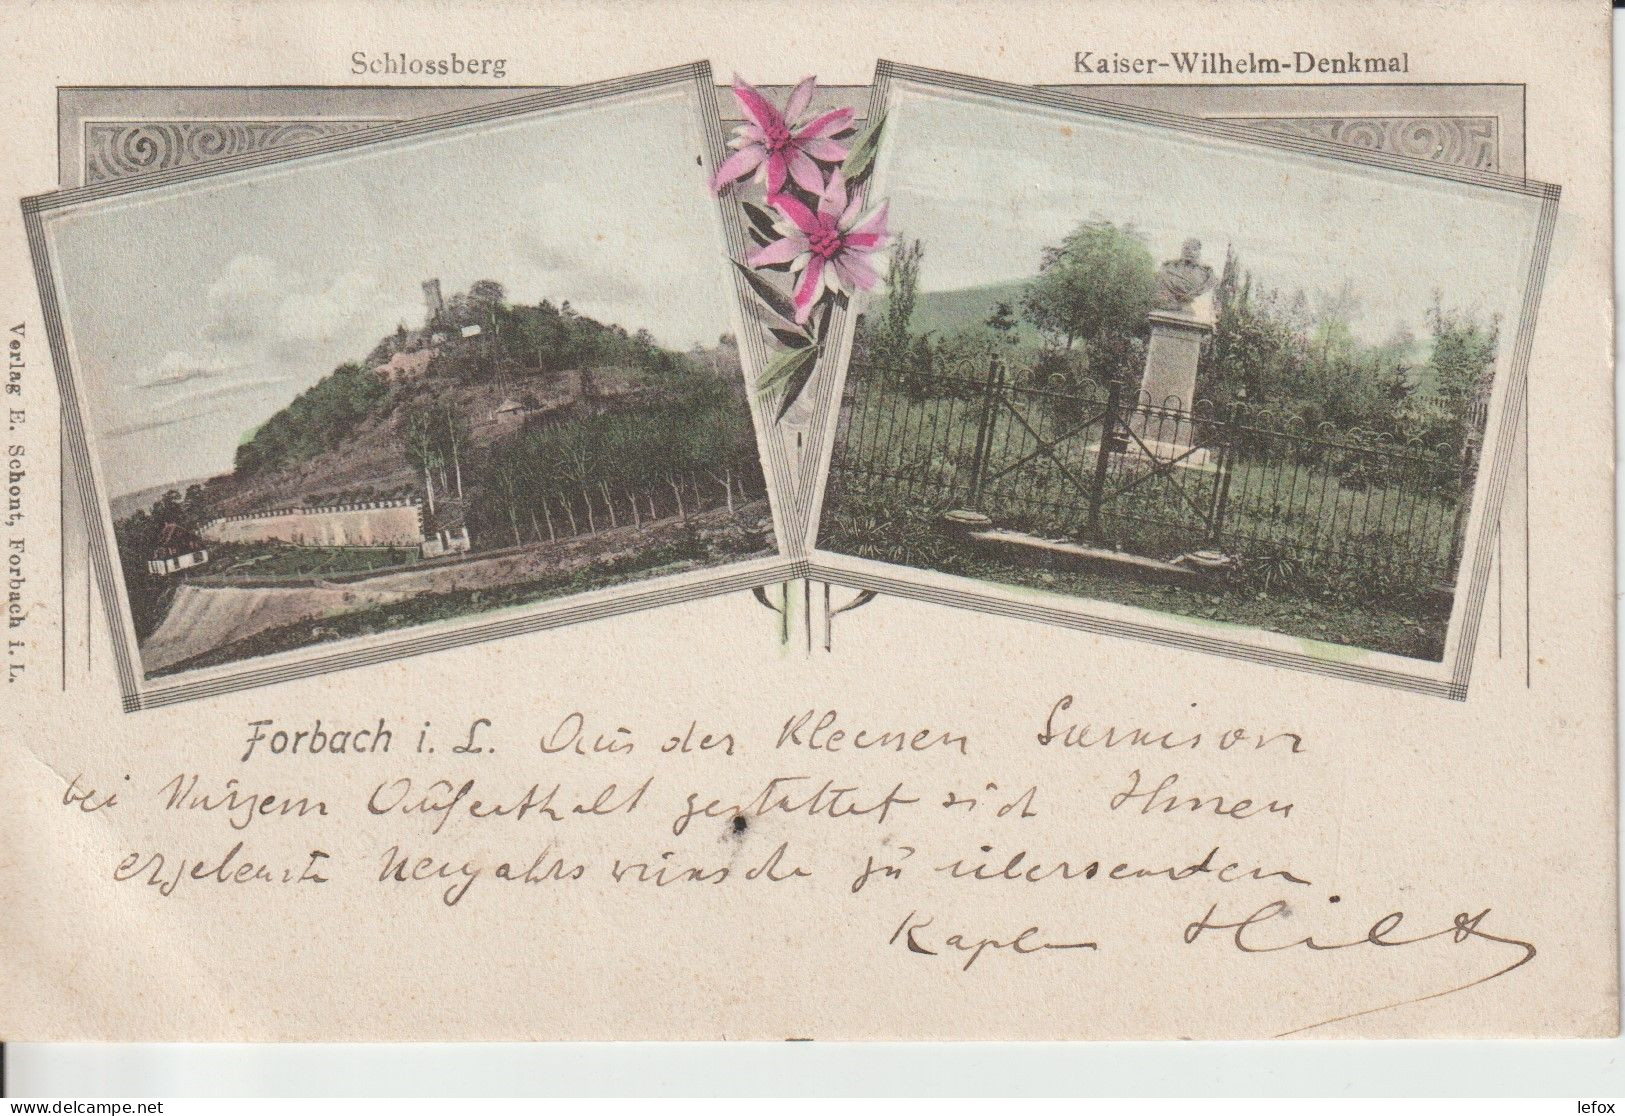 Schlossberg
Kaiser-Wilhelm-Denkmal
Verlag E. Schont, Forbach i. L.
Forbach i. L. Aus der kleinen Garnison
bei kurzem Aufenthalt gestattet sich Ihnen
ergebenste Neujahrswünsche zu übersenden
Kaplan Hilt
delcampe.net
lefox